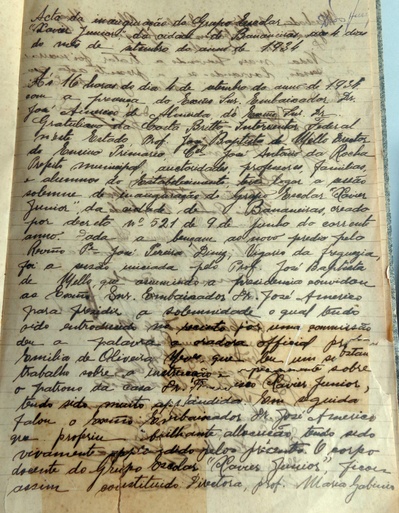 Acta da inauguração do Grupo Escolar
"Xavier Junior" da cidade de Bananeiras, aos 4 dias
do mes de setembro do anno de 1934
As 16 horas do dia 4 de setembro do anno de 1934
com a presença do Exmo Snr. Embaixador Dr.
José Americo de Almeida do Exmo Snr. Dr.
Gratuliano da Costa Britto, Interventor Federal
neste Estado Prof. José Baptista de Mello Director
do Ensino Primario, Cel. José Antonio da Rocha
Prefeito municipal, auctoridades, professores, familias
e alumnos do Estabelecimento teve logar a sessão
solemne da inauguração do Grupo Escolar "Xavier
Junior" da cidade de Bananeiras creado
por decreto nº 521 de 9 de junho do corrent
anno. Dada a bençam ao novo predio pelo
Revmo Pe. José Pereira Diniz, Vigario da freguezia
foi a sessão iniciada pelo Prof. José Baptista
de Mello que assumindo a presidencia convidou
ao Exmo Snr. Embaixador Dr. José Americo
para presidir a solemnidade o qual tendo
sido introduzido no recinto por uma commissão
deu a palavra a oradora official
Emilia de Oliveira Neves, que leu um
trabalho sobre a instrucção e sobre
o patrono da casa Dr. Xavier Junior,
tendo sido muito applaudida. Em seguida
falou o Exmo Embaixador Dr. José Americo
que proferiu brilhante allocução tendo sido
vivamente applaudido pelos presentes. O corpo
docente do Grupo Escolar "Xavier Junior", ficou
assim constituido: Directora, prof. Maria